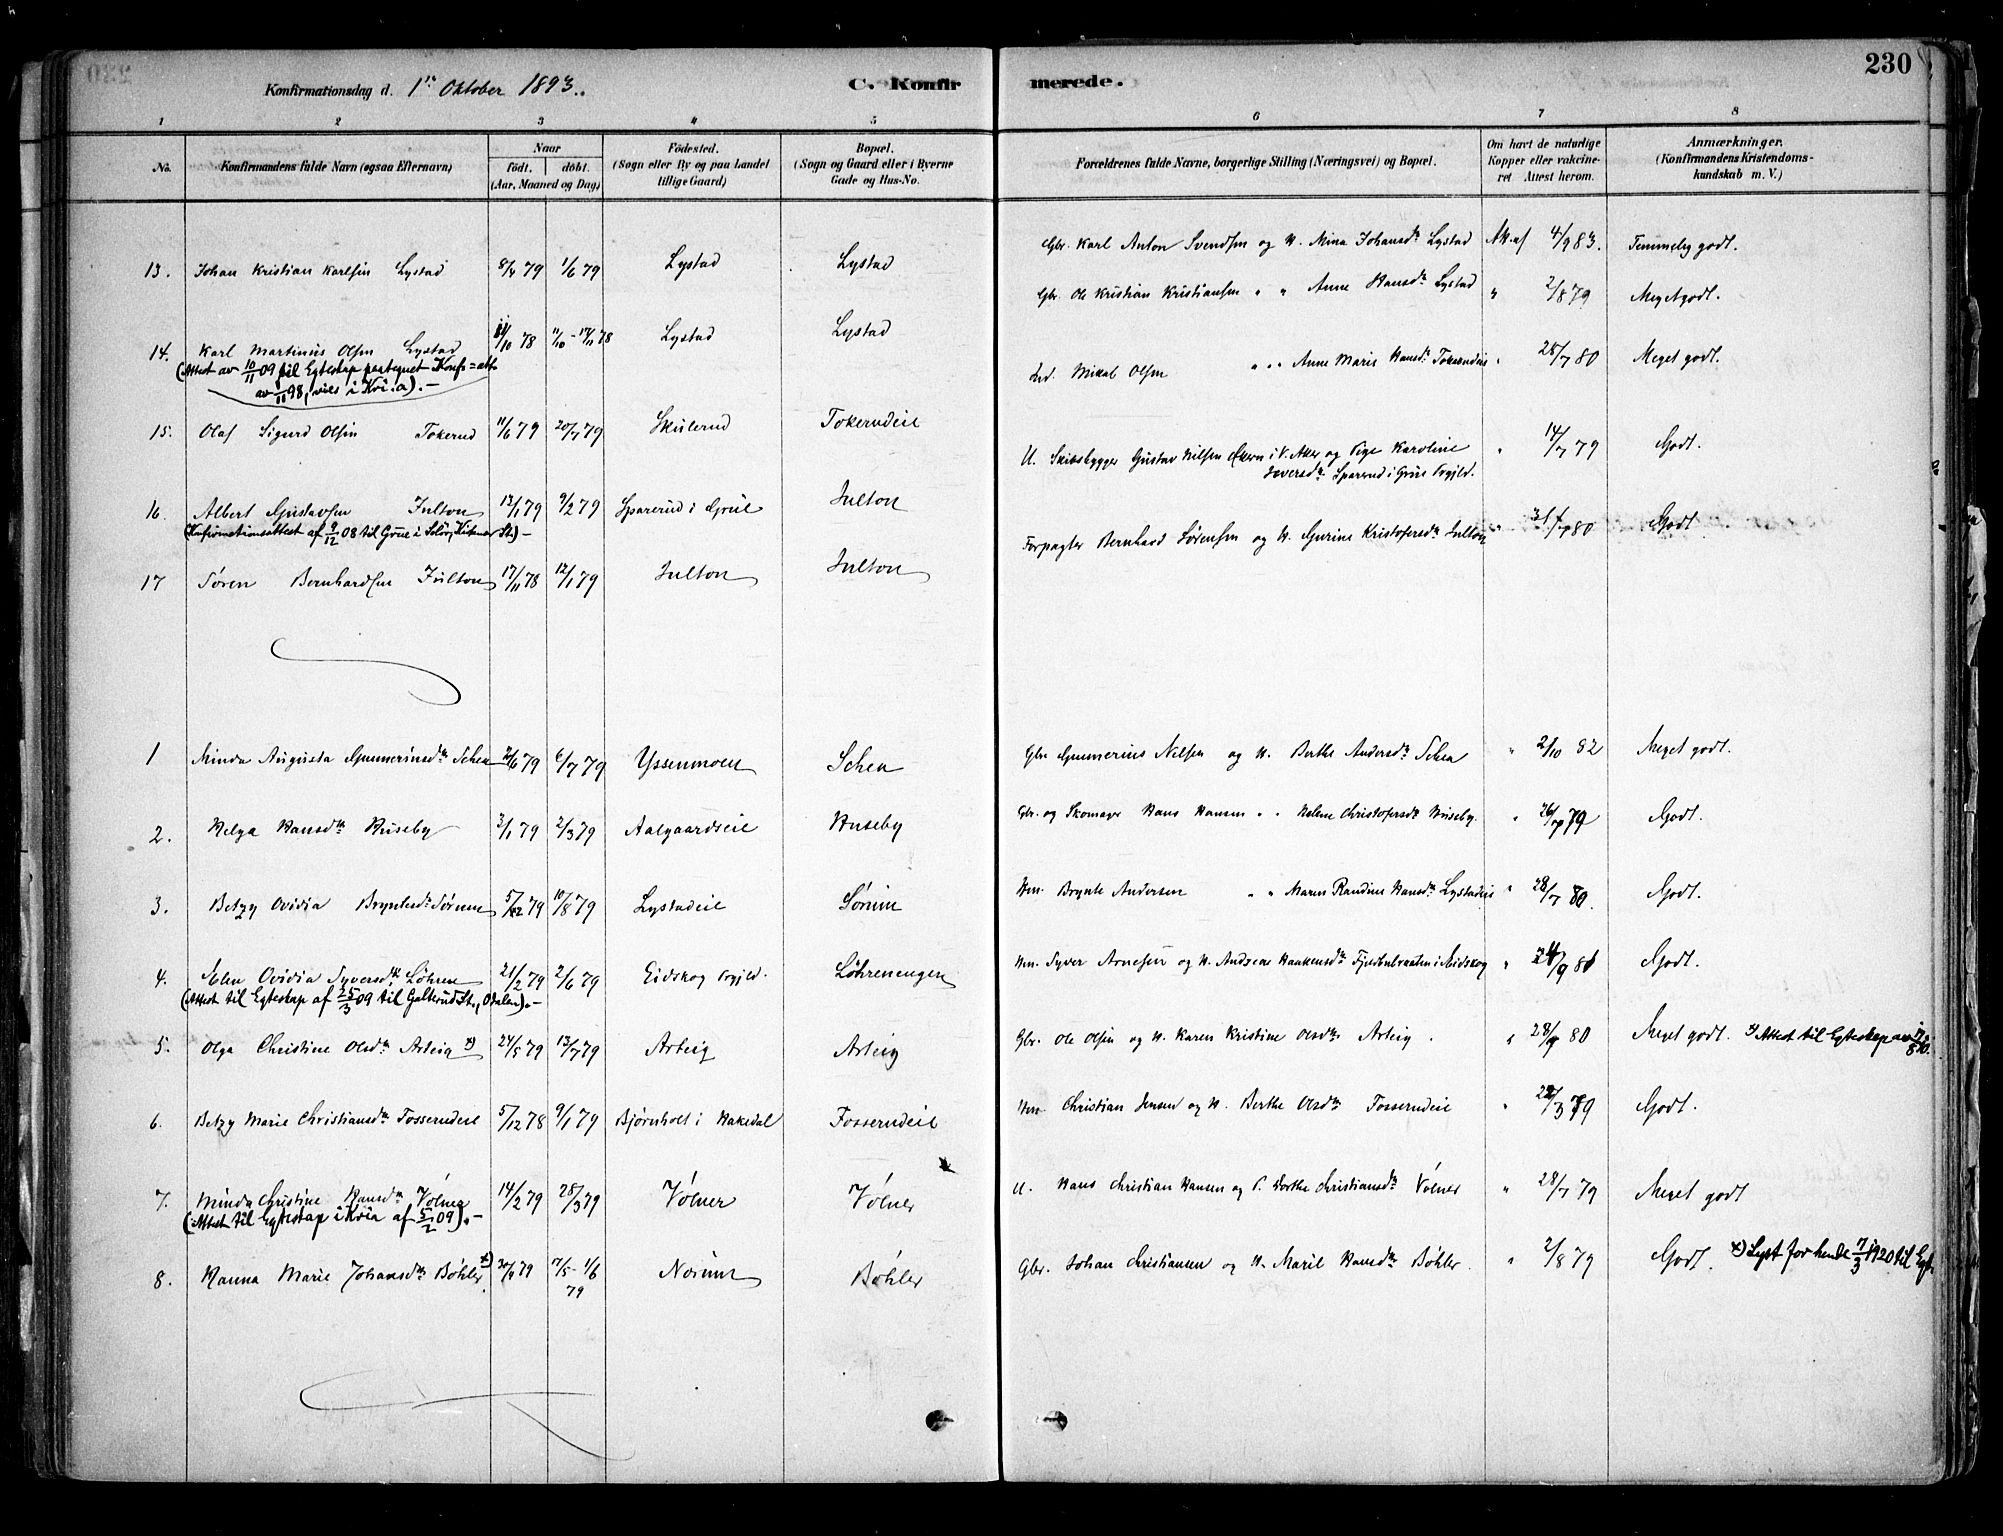 230
Konfirmationsdag d. 1ste Oktober 1893. C. Konfirmerede.
1 2 3 4 5 6 7 8
No. Konfirmandens fulde Navn (ogsaa Efternavn) Naar født. døbt. (Aar, Maaned og Dag) Fødested. (Sogn eller By og paa Landet tillige Gaard) Bopæl. (Sogn og Gaard eller i Byerne Gade og Hus-No. Forældrenes fulde Navne, borgerlige Stilling (Næringsvei) og Bopæl. Om havt de naturlige Kopper eller vakcineret Attest herom. Anmærkninger. (Konfirmandens Kristendomskundskab m. V.)
13. Johan Kristian Karlsen Lystad 8/4 79 1/6 79 Lystad Lystad Gbr. Karl Anton Svendsen og H. Mina Johansdr Lystad 4/9 83. Temmelig godt.
14. Karl Martinius Olsen Lystad /10 78 11/10 - 17/11 78 Lystad Lystad Gbr. Ole Kristian Kristiansen " " Anne Hansdr Lystad " 2/8 79 Meget godt.
(Attest av 10/11 09 til Egteskap paategnet Konf=att.
av 1/11 98, vies i Kri.a). -
15. Olaf Sigurd Olsen Tokerud 11/6 79 20/7 79 Skulerud Tokerudeie Ind. Mikal Olsen " " Anne Marie Hansdr Tokerudeie " 28/7 80 Meget godt.
16. Albert Gustavsen Julton 13/1 79 9/2 79 Sparerud i Grue Julton U. Skibsbygger Gustav Nilsen Ekern i V. Aker og Pige Karoline Iversdr Sparerud i Grue Prgjld. " 14/7 79 Godt.
(Konfirmationsattest af 9/12 08 til Grue i Solør, Kirkenær St.) -
17 Søren Bernhardsen Julton 17/11 78 12/1 79 Julton Julton Forpagter Bernhard Sørensen og H. Gurine Kristofersdr Julton " 31/7 80 Godt
1 Minda Augusta Gunneriusdr Schea /6 79 6/7 79 Yssenmoen Schea Gbr Gunnerius Nilsen og H. Berthe Andersdr Schea " 2/10 82 Meget godt.
2. Helga Hansdtr Huseby 3/1 79 2/3 79 Aalgaardseie Huseby Gbr. og Skomager Hans Hansen " " Helene Christofersdr Huseby. " 26/7 79 Godt.
3. Betzy Ovidia Bryntesdr Sørum 5/ 79 10/8 79 Lystadeie Sørum Hm. Brynte Andersen " " Maren Randine Hansdr Lystadeie " 28/7 80. Godt.
4. Elen Ovidia Syversdtr Løhren 21/2 79 2/6 79 Eidskog Prgjld. Løhrenengen Hm. Syver Arnesen og H. Andrea Haakensdr Fjeldbraaten i Eidskog " /9 81 Godt.
(Attest til Egteskap af 25/3 09 til Galterud St., Odalen). -
5. Olga Christine Olsdr Arteig x) 24/5 79 13/7 79 Arteig Arteig Gbr. Ole Olsen og H. Karen Kristine Olsdr Arteig. " 28/9 80 Meget godt. x) Attest til Egteskap av
6. Betzy Marie Christiansdtr Fosserudeie 5/12 78 9/1 79 Bjørnholt i Hakedal Fosserudeie Hm. Christian Jensen og H. Berthe Olsdtr Fosserudeie " /3 79 Godt.
7. Minda Christine Hansdtr Vølner 14/2 79 28/3 79 Vølner Vølner U. Hans Christian Hansen og P. Dorthe Christiansdr Vølner " 28/7 79 Meget godt
(Attest til Egteskap i Kria af 5/2 09). -
8. Hanna Marie Johansdtr Bøhler x) 30/4 79 17/5 - 1/6 79 Norum Bøhler Gbr. Johan Christiansen og H. Marie Hansdr Bøhler. " 2/8 79 Godt. x) Lyst for hende 7/3 1920 til Egt.